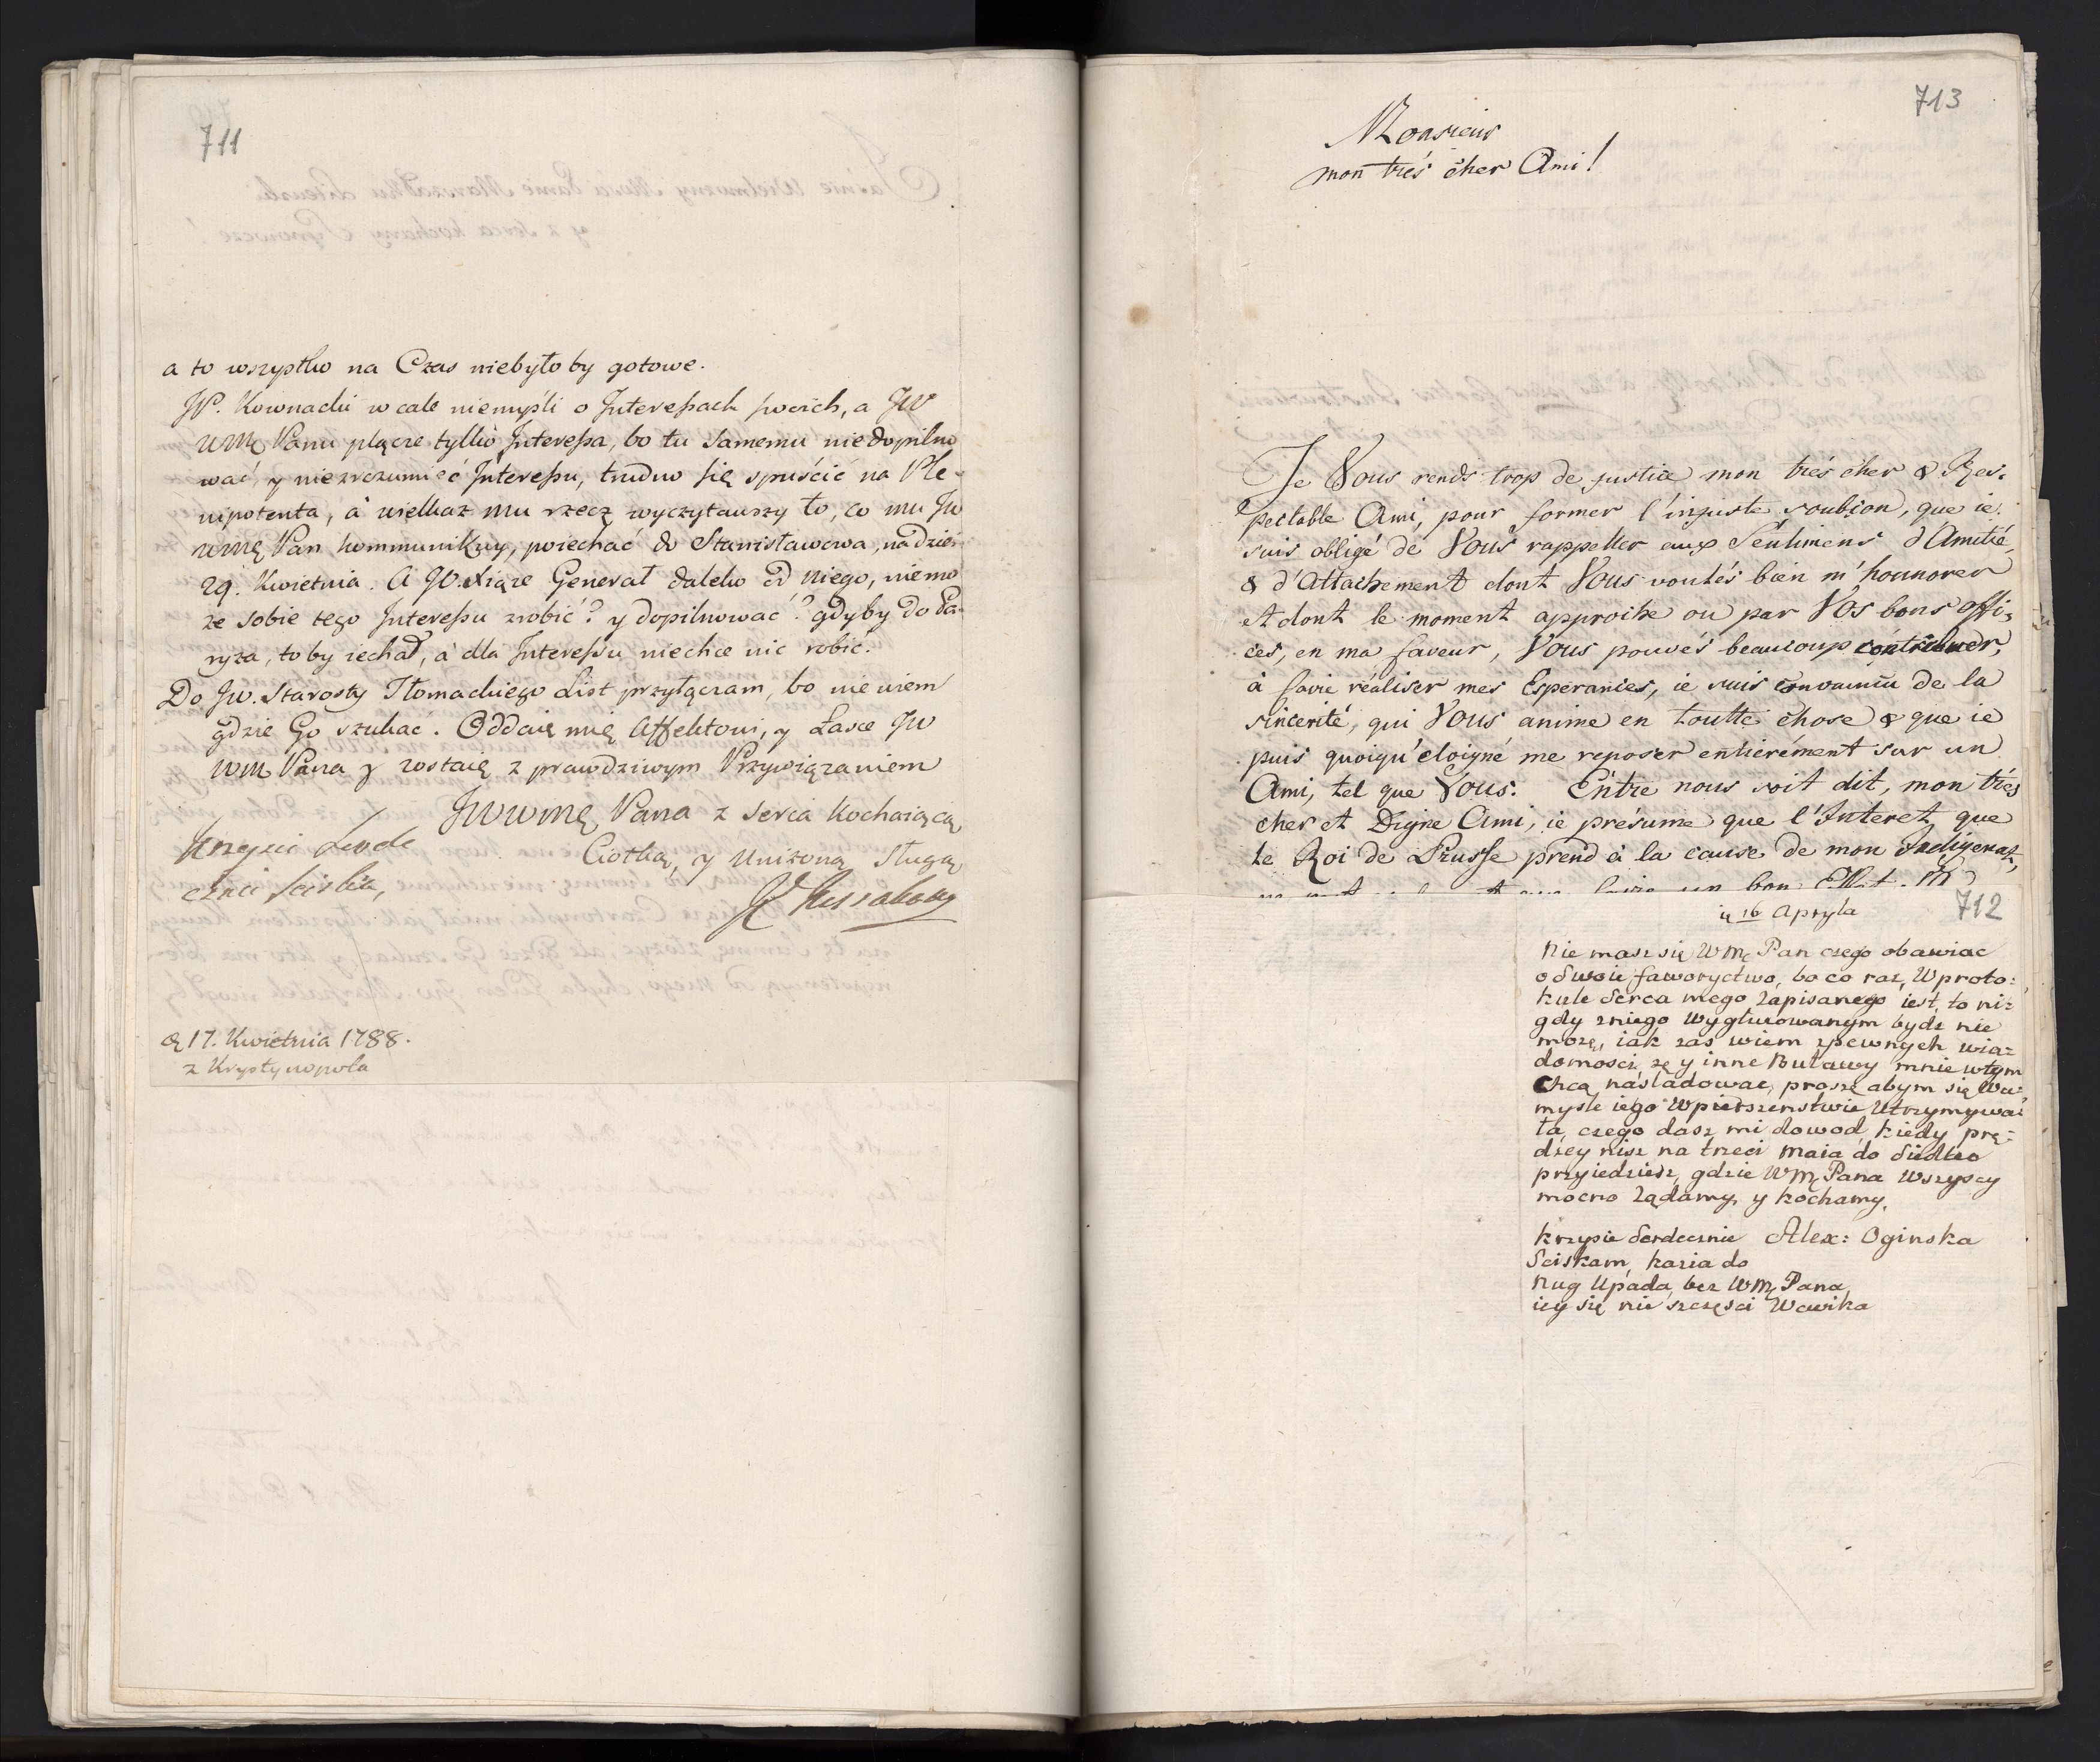 711
a to wszystko na Czas niebyłoby gotowe.
JP. Kownacki wcale niemyśli o Interessach swoich, a JW
WMę Panu plącze tylko Interessa, bo tu samemu niedopilno
wać, y niezrozumieć Interessu, trudno się spuścić na Ple-
nipotenta, a wielkaż mu rzecz wyczytawszy to, co mu JW
WMę Pan kommunikuy, poiechać do Stanisławowa, na dzień
29. Kwietnia. A JO. Xiąże Generał daleko od niego, niemo
że sobie tego Interessu zrobić? y dopilnować? gdyby do Pa-
ryża, to by iechał, a dla Interessu niechce nic robić.
Do JW. Starosty Tłomackiego List przyłączam, bo nie wiem
gdzie Go szukać. Oddaię mię Affektowi, y Łasce JW
WM Pana y zostaię z prawdziwym Przywiązaniem
JWWMę Pana z serca Kochaiącą
Ciotką, y Uniżoną Sługą
Krzysię Serde
cznie sciskam,
d 17. Kwietnia 1788.
z Krystynopola
713
Monsieur
mon trés cher Ami!
Je Vous rends trop de justice mon trés cher & Res-
pectable Ami, pour former l'injuste soubçon, que ie
suis obligé de Vous rappeller aux Sentimens d'Amitié
& d'Attachement dont Vous voulés bien m'honnorer
et dont le moment approche ou par Vos bons offi-
ces, en ma faveur, Vous pouvés beaucoup contribuer,
à faire réaliser mes Esperances, ie suis convaincu de la
sincerité, qui Vous anime en toutte chose & que ie
puis quoiqu'eloigné me reposer entierément sur un
Ami, tel que Vous. Entre nous soit dit, mon trés
cher et Digne Ami, ie présume que l'Interet que
le Roi de Prusse prend à la cause de mon Indigenat,
faire un bon Effet.
712
16 Apryla
Nie masz się WMę Pan czego obawiac
o Swoie faworyctwo, bo co raz, W proto:
kule Serca mego zapisanego iest, to ni:
gdy zniego wygluzowanym bydz nie
może, iak zas wiem zpewnych wia:
domosci, zę y inne Buławy mnie wtym
Chcą nasladowac, proszę abym się Wu:
mysle iego Wpierszenstwie Utrzymywa:
ła, czego dasz mi dowod, kiedy prę:
dzey nisz na trzeci Maia do Siedlec
przyiedziesz, gdzie WMę Pana Wszyscy
mocno żądamy, y kochamy,
Krzysie Serdecznie Alex: Oginska
Sciskam, Kazia do
Nug Upada, bez WMę Pana
iey się nie szczęsci